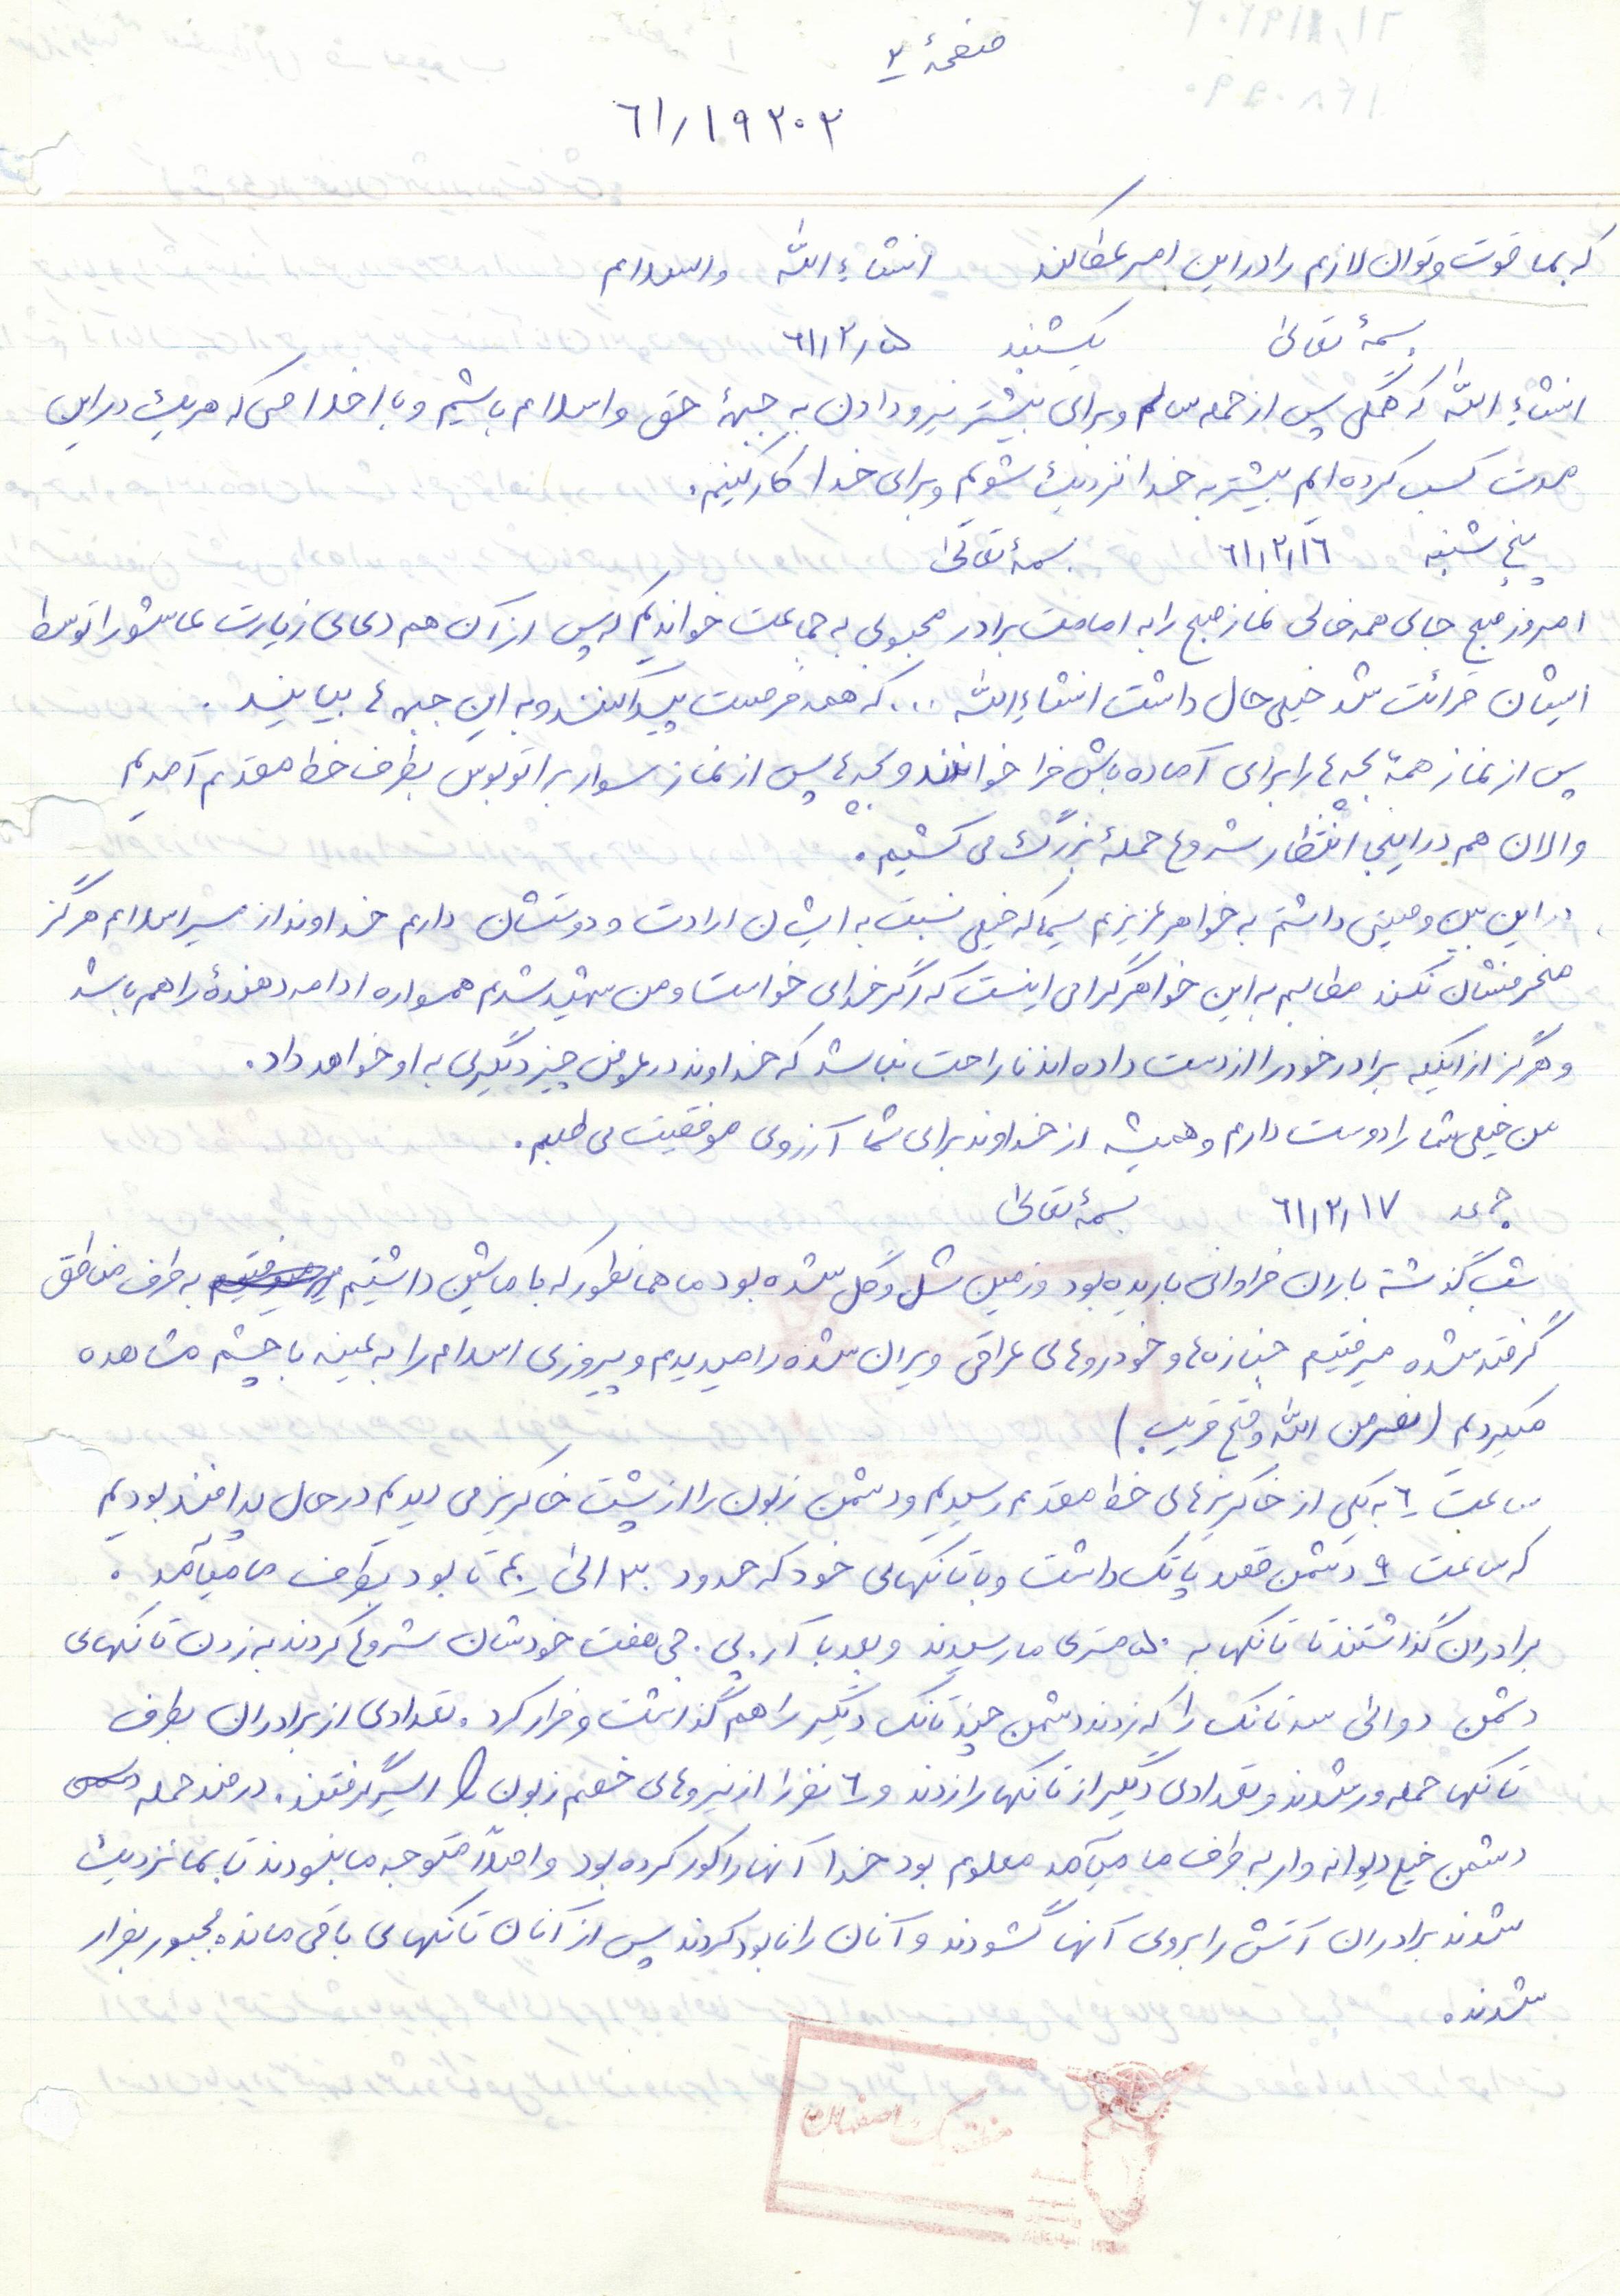 صفحهٔ ۲
۶۱/۱۹۲۰۲
که بما قوت و توان لازم را در این امر عطا کند انشاءالله والسلام
بسمهٔ تعالی یکشنبه ۶۱/۲/۵
انشاءالله که همگی پس از حمله سالم و برای بیشتر نیرو دادن به جبههٔ حق و اسلام باشیم و با اخلاصی که هریک در این
مدت کسب کرده ایم بیشتر به خدا نزدیک شویم و برای خدا کار کنیم.
پنج شنبه ۶۱/۲/۱۶ بسمهٔ تعالی
امروز صبح جای همه خالی نماز صبح را به امامت برادر محبوبی به جماعت خواندیم که پس از آن هم دعای زیارت عاشورا توسط
ایشان قرائت شد خیلی حال داشت انشاءالله ... که همه فرصت پیدا کنند و به این جبهه ها بیایند.
پس از نماز همهٔ بچه ها را برای آماده باش فرا خواندند و بچه ها پس از نماز سوار بر اتوبوس بطرف خط مقدم آمدیم
والان هم در اینجا انتظار شروع حملهٔ بزرگ می کشیم.
در این بین وصیتی داشتم به خواهر عزیزم سیما که خیلی نسبت به ایشان ارادت و دوستشان دارم خداوند از مسیر اسلام هرگز
منحرفشان نکند مطالبم به این خواهر گرامی اینست که اگر خدای خواست و من شهید شدم همواره ادامه دهندهٔ راهم باشد
و هرگز از اینکه برادر خود را از دست داده اند ناراحت نباشد که خداوند در عوض چیز دیگری به او خواهد داد.
من خیلی شما را دوست دارم و همیشه از خداوند برای شما آرزوی موفقیت می طلبم.
جمعه ۶۱/۲/۱۷ بسمهٔ تعالی
شب گذشته باران فراوانی باریده بود و زمین شل و گل شده بود ما همانطور که با ماشین داشتیم به طرف مناطق
گرفته شده میرفتیم جنازه ها و خودروهای عراقی ویران شده را میدیدیم و پیروزی اسلام را به عینه با چشم مشاهده
میکردیم (نصر من الله و فتح قریب)
ساعت ۶ به یکی از خاکریزهای خط مقدم رسیدیم و دشمن زبون را از پشت خاکریز می دیدیم در حال پدافند بودیم
که ساعت ۹ دشمن قصد پاتک داشت و با تانکهای خود که حدود ۳۰ الی ۴۰ تا بود بطرف ما میآمد.
برادران گذاشتند تا تانکها به ۵۰ متری ما رسیدند و بعد با آر.پی.جی هفت خودشان شروع کردند به زدن تانکهای
دشمن دو الی سه تانک را که زدند دشمن چند تانک دیگر را هم گذاشت و فرار کرد. تعدادی از برادران بطرف
تانکها حمله ور شدند و تعدادی دیگر از تانکها را زدند و ۶ نفر را از نیروهای خصم زبون اسیر گرفتند. در ضد حمله
دشمن خیلی دیوانه وار به طرف ما میآمد معلوم بود خدا آنها را کور کرده بود و اصلاً متوجه ما نبودند تا بما نزدیک
شدند برادران آتش را بروی آنها گشودند و آنان را نابود کردند پس از آنان تانکهای باقی مانده مجبور بفرار
شدند.